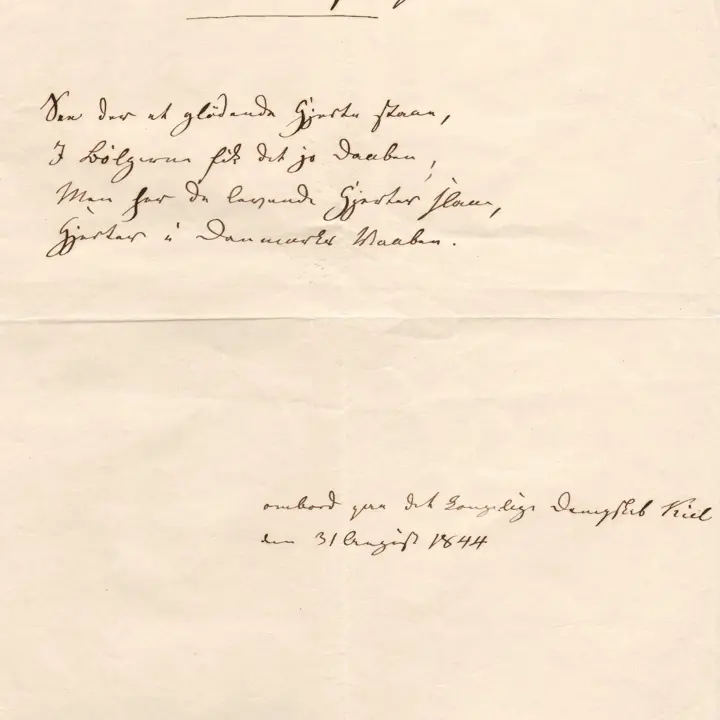 See der et glödende Hjerte staae,
I Bölgerne fik det jo Daaben,
Men her de levende Hjerter slaae,
Hjerter i Danmarks Vaaben.
ombord paa det kongelige Dampskib Kiel
den 31 August 1844